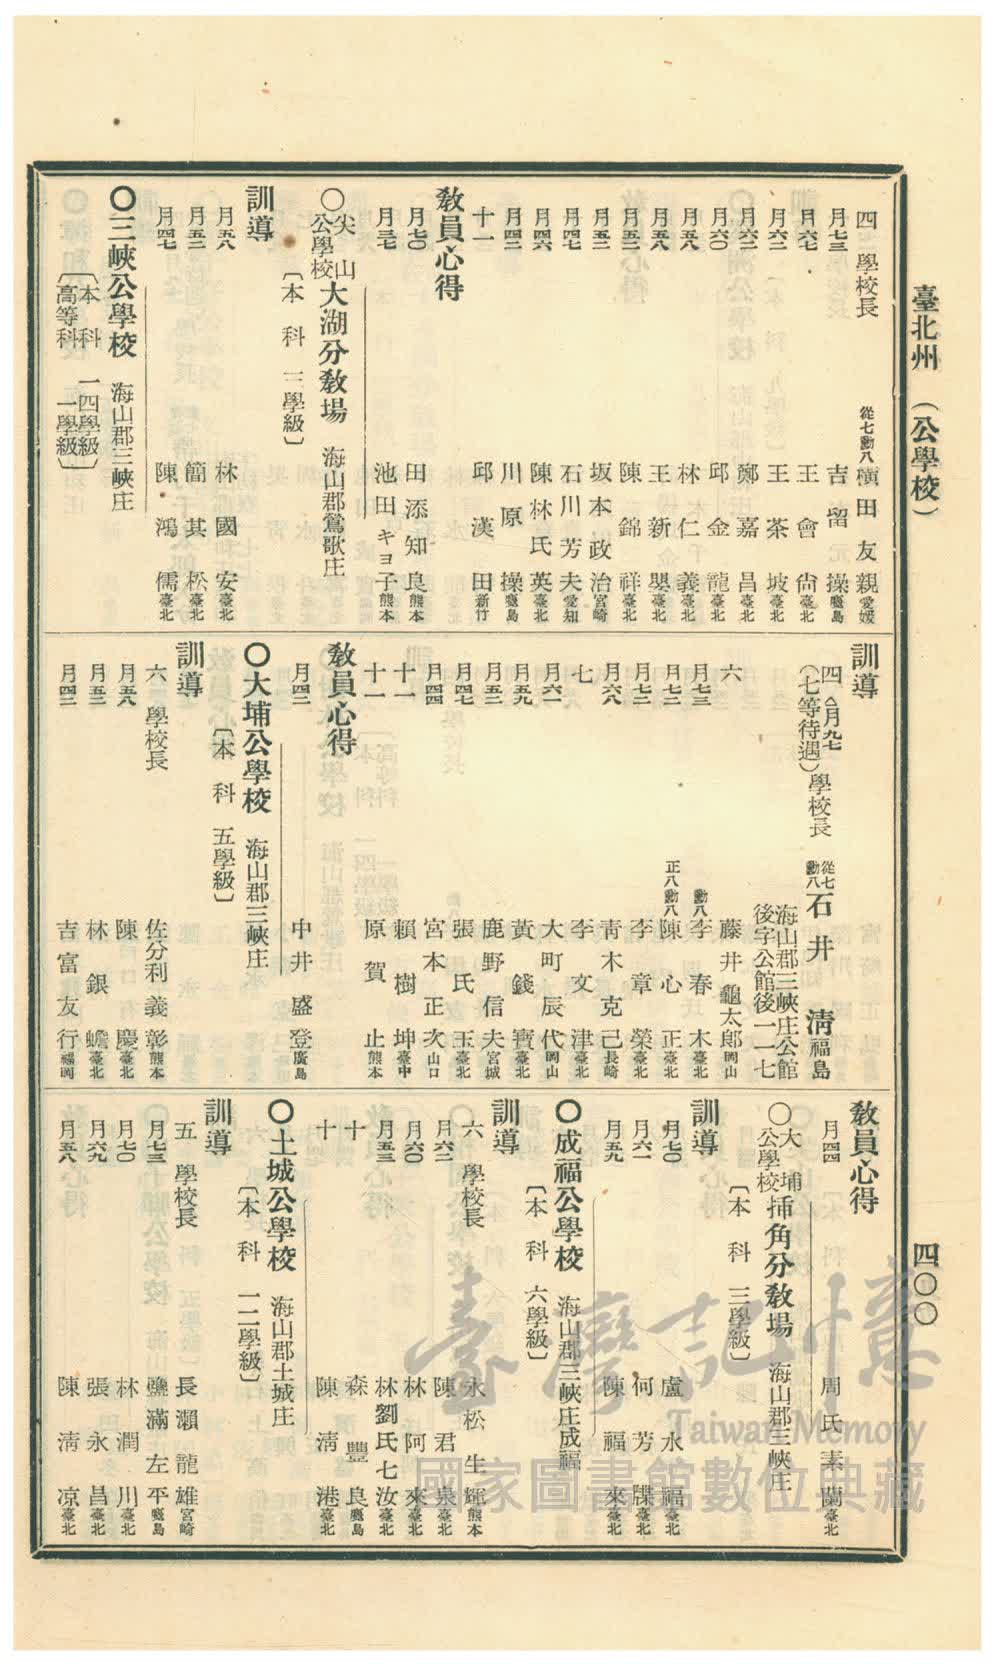 臺北州 (公學校)
四〇〇
四 學校長 從七勳八 橫田友親 愛媛
月七三 吉留操 鹿兒島
月六七 王會尙 臺北
月六二 王茶坡 臺北
月六二 鄭嘉昌 臺北
月六〇 邱金龍 臺北
月五八 林仁義 臺北
月五八 王新興 臺北
月五二 陳錦祥 臺北
月五二 坂本政治 宮崎
月四七 石川芳夫 愛知
月四六 陳林氏英 臺北
月四二 川原操 鹿兒島
十一 邱漢田 新竹
敎員心得
月七〇 田添知良 熊本
月三七 池田キヨ子 熊本
〇尖山公學校大湖分敎場 海山郡鶯歌庄
〔本科 三學級〕
訓導
月五八 林國安 臺北
月五二 簡其松 臺北
月四七 陳鴻儒 臺北
〇三峽公學校 海山郡三峽庄
〔本科 一四學級〕
〔高等科 一學級〕
訓導
四 月九七 (七等待遇) 學校長 從七勳八 石井淸 福島
海山郡三峽庄公館
後字公館後一一七
六 藤井龜太郞 岡山
月七三 勳八 李春木 臺北
月七二 正八勳八 陳心正 臺北
月七二 李章榮 臺北
月六八 靑木克己 長崎
七 李文津 臺北
月六一 大町辰代 岡山
月五九 黃錢寶 臺北
月五二 鹿野信夫 宮城
月四七 張氏玉 臺北
月四四 宮本正次 山口
十一 賴樹坤 臺中
十一 原賀止 熊本
敎員心得
月四二 中井盛登 廣島
〇大埔公學校 海山郡三峽庄
〔本科 五學級〕
訓導
六 學校長 佐分利義彰 熊本
月五八 陳有慶 臺北
月五二 林銀蟾 臺北
月四二 吉富友行 福岡
敎員心得
月四四 周氏素蘭 臺北
〇大埔公學校揷角分敎場 海山郡三峽庄
〔本科 三學級〕
訓導
月七〇 盧永福 臺北
月六一 何芳牒 臺北
月五九 陳福來 臺北
〇成福公學校 海山郡三峽庄成福
〔本科 六學級〕
訓導
六 學校長 永松生輝 熊本
月六二 陳君泉 臺北
月六〇 林阿來 臺北
月五三 林劉氏七汝 臺北
十 森豐良 鹿兒島
十 陳淸港 臺北
〇土城公學校 海山郡土城庄
〔本科 一二學級〕
訓導
五 學校長 長瀨龍雄 宮崎
月七三 鹽滿左平 鹿兒島
月七〇 林潤川 臺北
月六九 張永昌 臺北
月五八 陳淸凉 臺北
臺灣記憶
Taiwan Memory
國家圖書館數位典藏